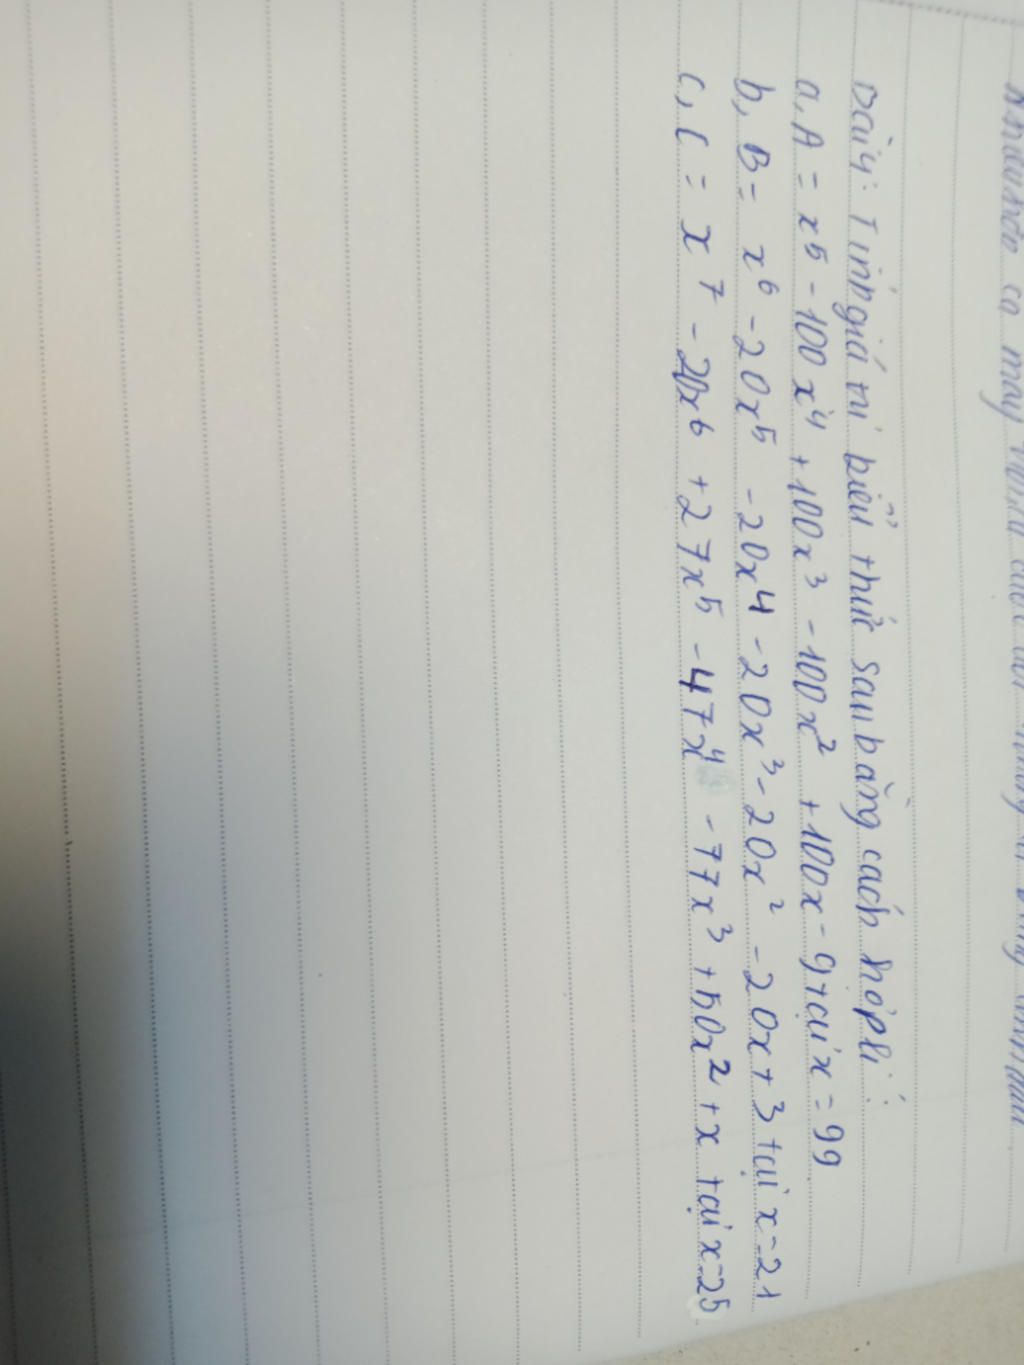 Bài 4: Tính giá trị biểu thức sau bằng cách hợp lí:
a, A = x⁵ - 100x⁴ + 100x³ - 100x² + 100x - 9 tại x = 99
b, B = x⁶ - 20x⁵ - 20x⁴ - 20x³ - 20x² - 20x + 3 tại x = 21
c, C = x⁷ - 20x⁶ + 27x⁵ - 47x⁴ - 77x³ + 50x² + x tại x = 25